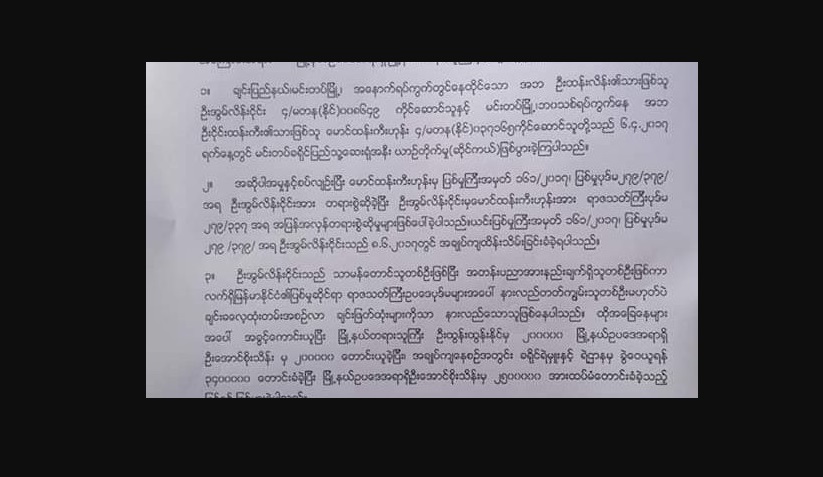 ၁။ ချင်းပြည်နယ်၊မင်းတပ်မြို့၊ အနောက်ရပ်ကွက်တွင်နေထိုင်သော အဘ ဦးထန်းလိန်း၏သားဖြစ်သူ
ဦးအွမ်လိန်းငိုင်း ၄/မတန(နိုင်)၀၀၈၆၄၉ ကိုင်ဆောင်သူနှင့် မင်းတပ်မြို့၊ဘဝသစ်ရပ်ကွက်နေ အဘ
ဦးငိုင်းထန်းကီး၏သားဖြစ်သူ မောင်ထန်းကီးဟုန်း ၄/မတန(နိုင်)၀၃၇၁၆၅ကိုင်ဆောင်သူတို့သည် ၆.၄.၂၀၁၇
ရက်နေ့တွင် မင်းတပ်ခရိုင်ပြည်သူ့ဆေးရုံအနီး ယာဉ်တိုက်မှု(ဆိုင်ကယ်)ဖြစ်ပွားခဲ့ကြပါသည်။
၂။ အဆိုပါအမှုနှင့်စပ်လျဉ်းပြီး မောင်ထန်းကီးဟုန်းမှ ပြစ်မှုကြီးအမှတ် ၁၆၁/၂၀၁၇၊ ပြစ်မှုပုဒ်မ၂၇၉/၃၇၉/
အရ ဦးအွမ်လိန်းငိုင်းအား တရားစွဲဆိုခဲ့ပြီး ဦးအွမ်လိန်းငိုင်းမှမောင်ထန်းကီးဟုန်းအား ရာဇသတ်ကြီးပုဒ်မ
၂၇၉/၃၃၇ အရ အပြန်အလှန်တရားစွဲဆိုမှုများဖြစ်ပေါ်ခဲ့ပါသည်။ယင်းပြစ်မှုကြီးအမှတ် ၁၆၁/၂၀၁၇၊ ပြစ်မှုပုဒ်မ
၂၇၉ /၃၇၉/ အရ ဦးအွမ်လိန်းငိုင်းသည် ၈.၆.၂၀၁၇တွင် အချုပ်ကျထိန်းသိမ်းခြင်းခံခဲ့ရပါသည်။
၃။ ဦးအွမ်လိန်းငိုင်းသည် သာမန်တောင်သူတစ်ဦးဖြစ်ပြီး အတန်းပညာအားနည်းချက်ရှိသူတစ်ဦးဖြစ်ကာ
လက်ရှိမြန်မာနိုင်ငံ၏ပြစ်မှုဆိုင်ရာ ရာဇသတ်ကြီးဥပဒေပုဒ်မများအပေါ် နားလည်တတ်ကျွမ်းသူတစ်ဦးမဟုတ်ပဲ
ချင်းဓလေ့ထုံးတမ်းအစဉ်လာ ချင်းဖြတ်ထုံးများကိုသာ နားလည်သောသူဖြစ်နေပါသည်။ ထိုအခြေနေများ
အပေါ် အခွင့်ကောင်းယူပြီး မြို့နယ်တရားသူကြီး ဦးထွန်းထွန်းနိုင်မှ ၂၀၀၀၀၀ မြို့နယ်ဥပဒေအရာရှိ
ဦးအောင်စိုးသိန်း မှ ၂၀၀၀၀၀ တောင်းယူခဲ့ပြီး၊ အချုပ်ကျနေစဉ်အတွင်း ခရိုင်ရဲမှူးနှင့် ရဲဌာနမှ ခွဲဝေယူရန်
၃၄၀၀၀၀၀ တောင်းခံခဲ့ပြီး မြို့နယ်ဥပဒေအရာရှိဦးအောင်စိုးသိန်းမှ ၂၅၀၀၀၀၀ အားထပ်မံတောင်းခံခဲ့သည့်